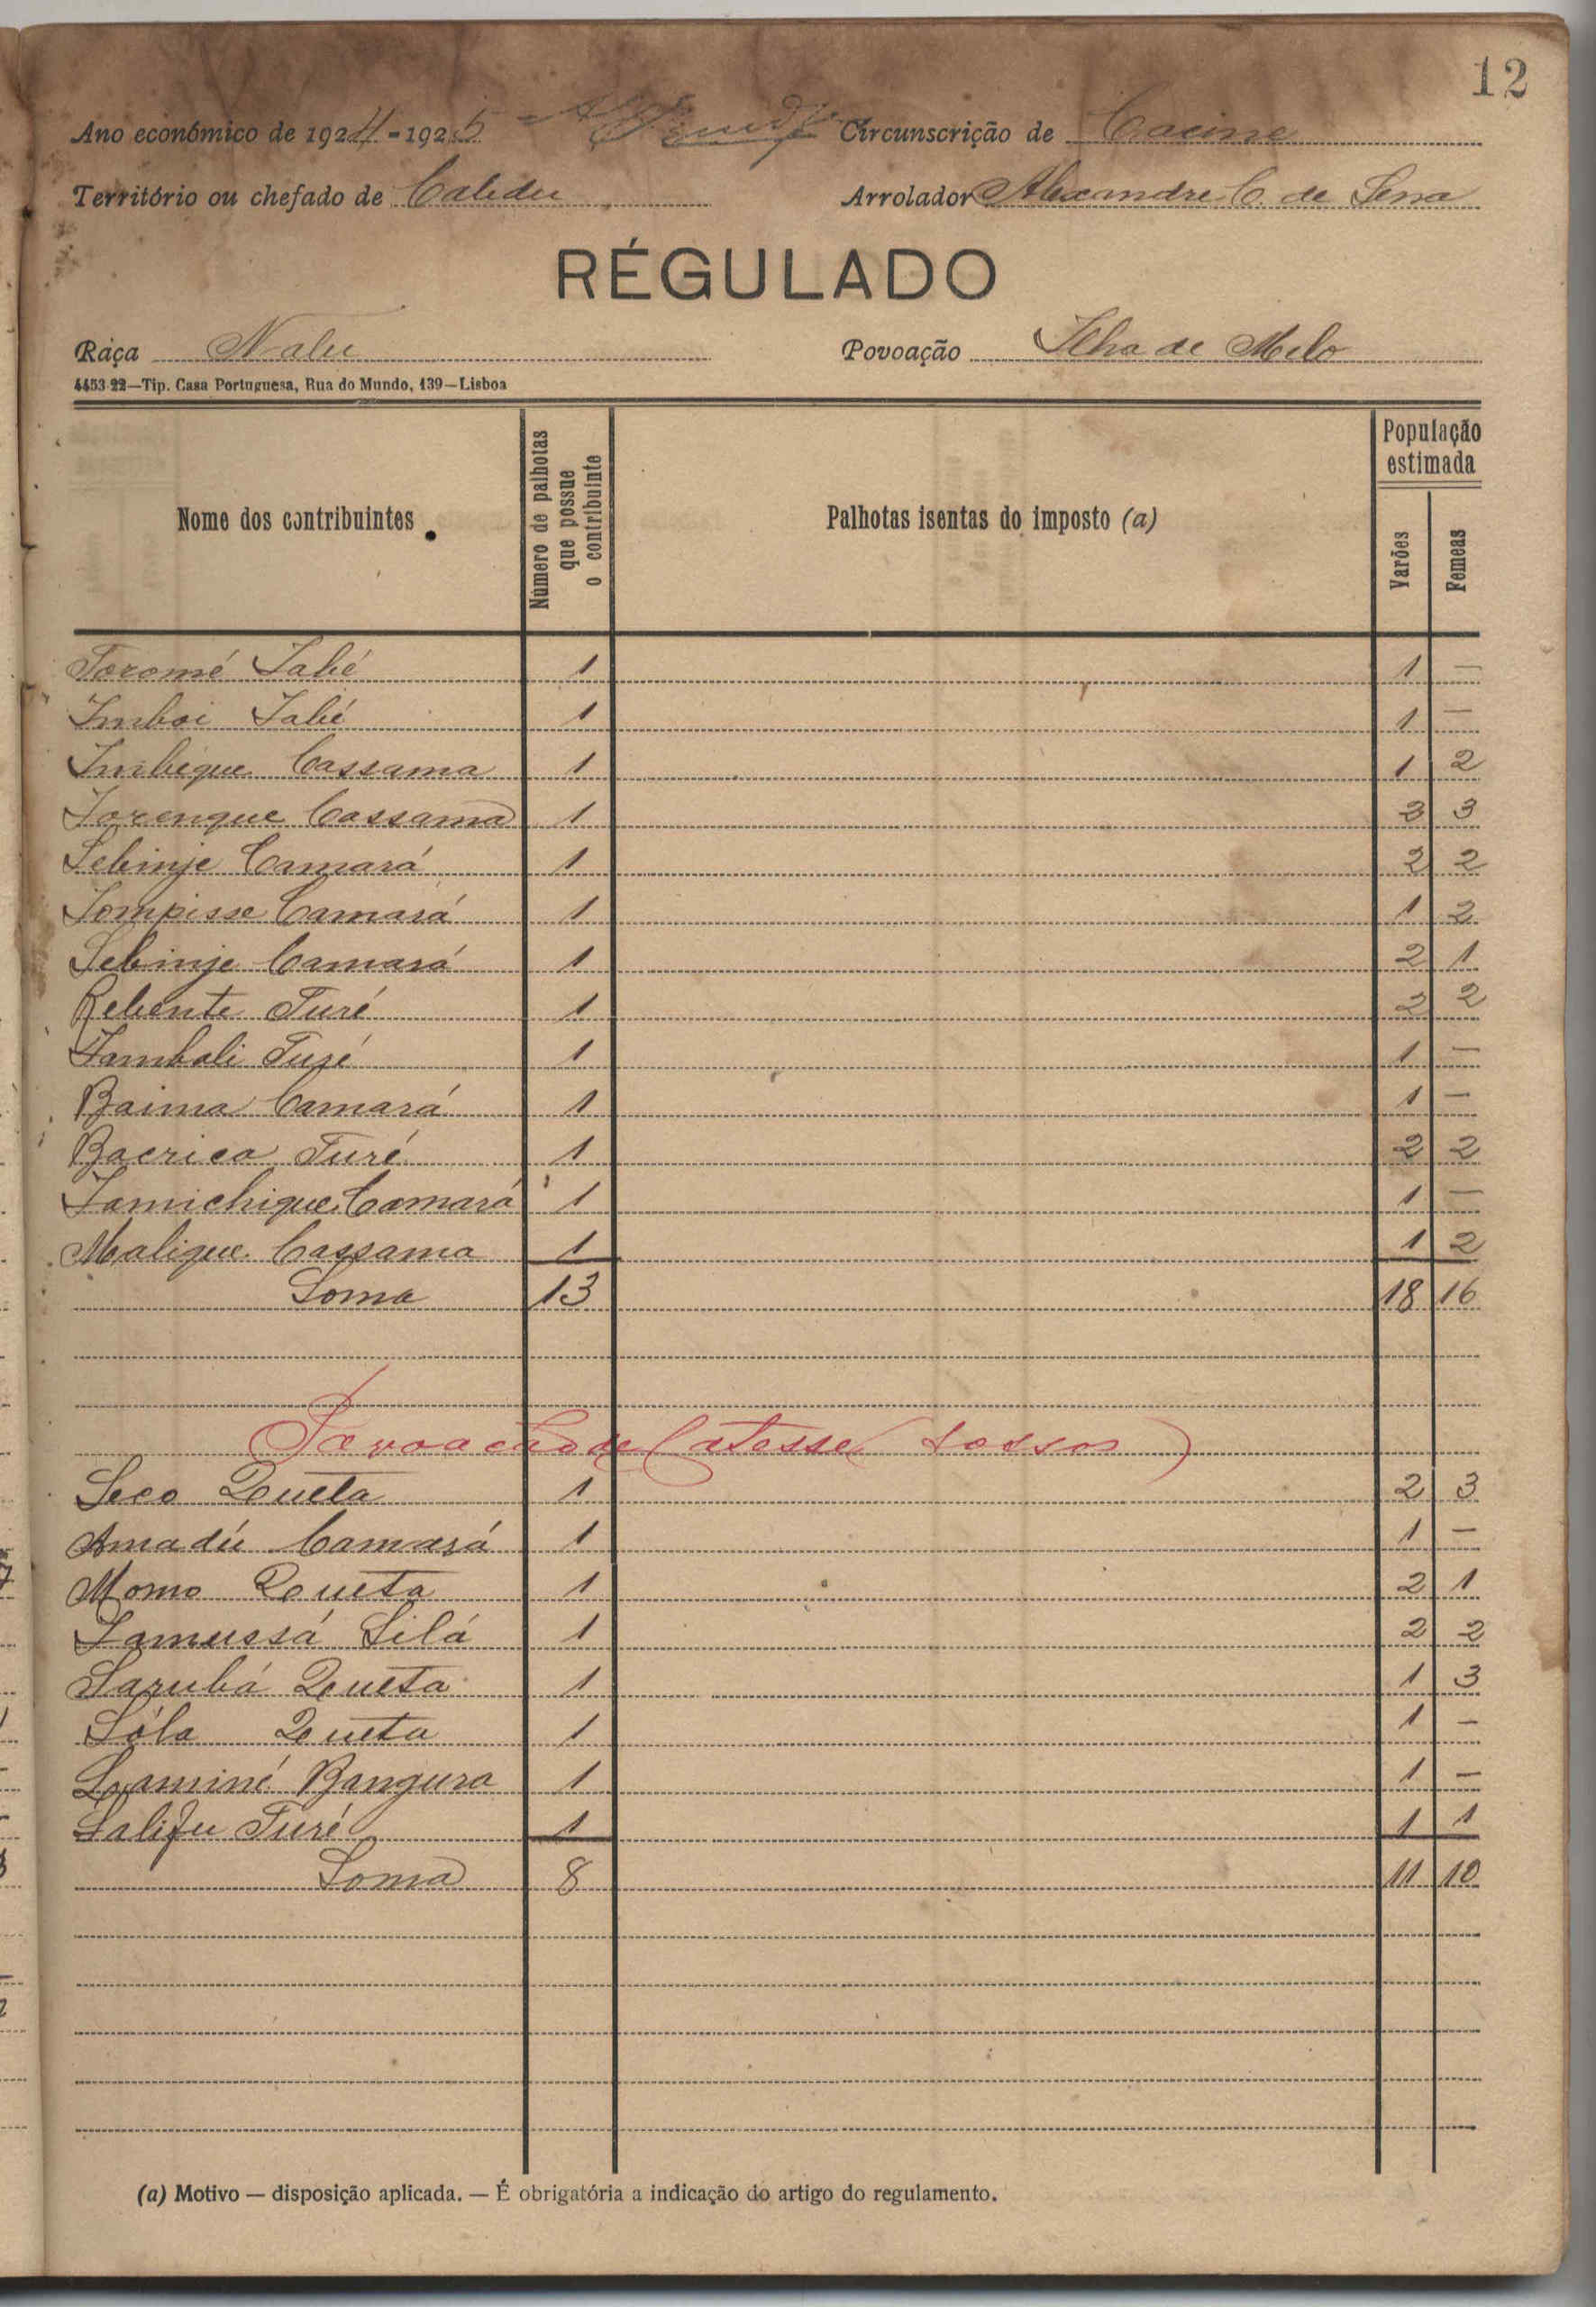 12
Ano económico de 1924-1925 Circunscrição de Cacine
Território ou chefado de Cabedu Arrolador Alexandre C. de Sena
RÉGULADO
Raça Nalu Povoação Ilha de Melo
4453-22—Tip. Casa Portuguesa, Rua do Mundo, 139—Lisboa
Nome dos contribuintes Número de palhotas que possue o contribuinte Palhotas isentas do imposto (a) População estimada Varões Femeas
Toromé Sabé 1 1 —
Imboi Sabé 1 1 —
Imbique Cassama 1 1 2
Torenque Cassama 1 2 3
Sebinje Camará 1 2 2
Sompisse Camará 1 1 2
Sebinje Camará 1 2 1
Rebente Turé 1 2 2
Tambali Turé 1 1 —
Baima Camará 1 1 —
Bacrica Turé 1 2 2
Lamichique Camará 1 1 —
Malique Cassama 1 1 2
Soma 13 18 16
Povoação de Catesse (Sossos)
Seco Queta 1 2 3
Amadú Camará 1 1 —
Momo Queta 1 2 1
Lamussá Silá 1 2 2
Sarubá Queta 1 1 3
Sóla Queta 1 1 —
Laminé Bangura 1 1 —
Salifu Turé 1 1 1
Soma 8 11 10
(a) Motivo — disposição aplicada. — É obrigatória a indicação do artigo do regulamento.